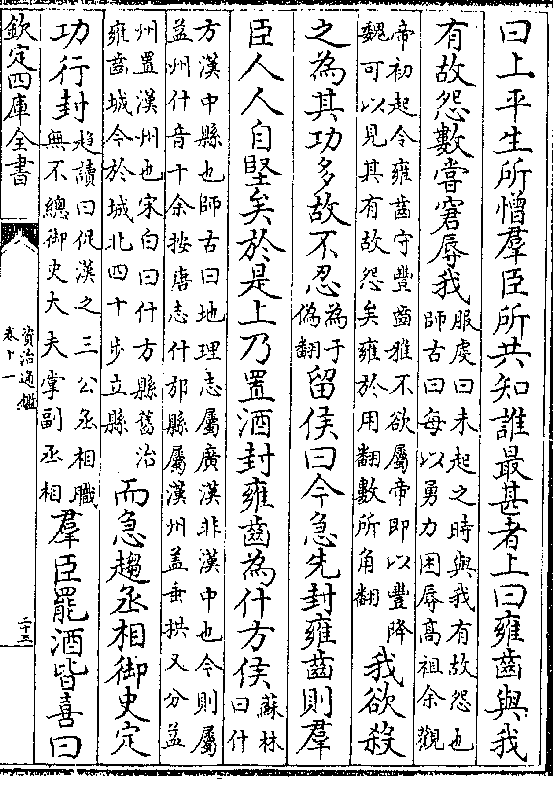 曰上平生所憎羣臣所共知誰最甚者上曰雍齒與我
有故怨數嘗窘辱我
服虔曰未起之時與我有故怨也
師古曰每以勇力困辱高祖余觀
帝初起令雍齒守豐齒雅不欲屬帝即以豐降
魏可以見其有故怨矣雍於用翻數所角翻
我欲殺
之為其功多故不忍
為于
偽翻
留侯曰今急先封雍齒則羣
臣人人自堅矣於是上乃置酒封雍齒為什方侯
蘇林
曰什
方漢中縣也師古曰地理志屬廣漢非漢中也今則屬
益州什音十余按唐志什邡縣屬漢州盖垂拱又分益
州置漢州也宋白曰什方縣舊治
雍齒城今於城北四十步立縣
而急趨丞相御史定
功行封
趨讀曰促漢之三公丞相職
無不總御史大夫掌副丞相
羣臣罷酒皆喜曰
欽定四庫全書
資治通鑑
卷十一
二十五